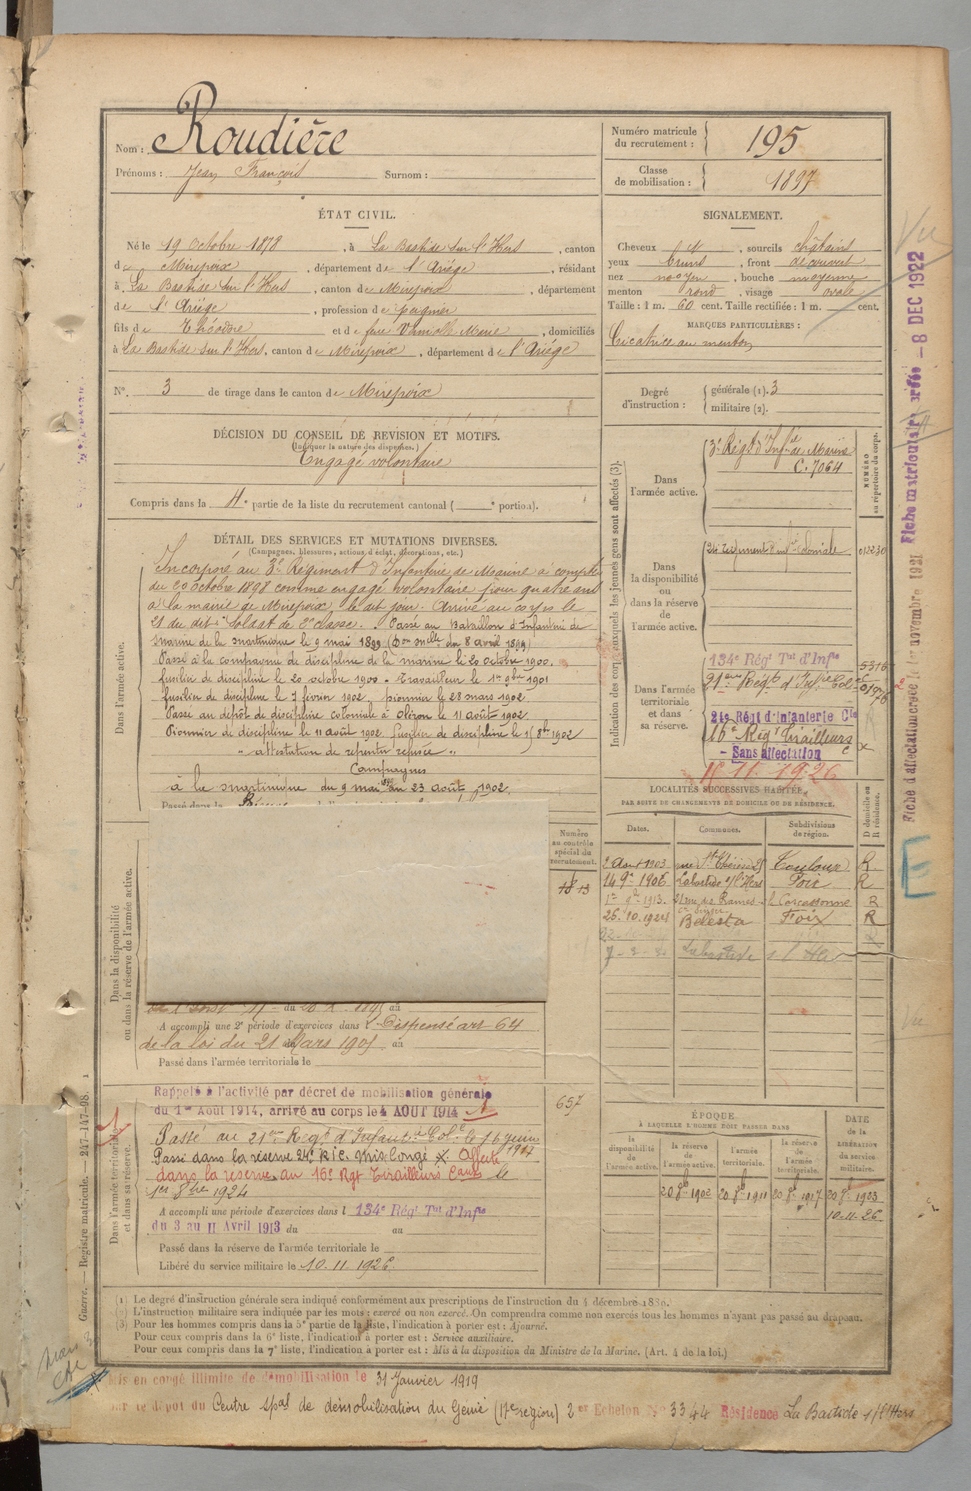 Nom : Roudière
Prénoms : Jean François Surnom :
Numéro matricule du recrutement : 195
Classe de mobilisation : 1897
ÉTAT CIVIL.
Né le 19 Octobre 1878, à La Bastide sur l'Hers, canton
de Mirepoix, département de l'Ariège, résidant
à La Bastide sur l'Hers, canton de Mirepoix, département
de l'Ariège, profession de peignier
fils de Théodore et de feue Marie, domiciliés
à La Bastide sur l'Hers, canton de Mirepoix, département de l'Ariège
N° 3 de tirage dans le canton de Mirepoix
SIGNALEMENT.
Cheveux et, sourcils châtains
yeux bruns, front découvert
nez moyen, bouche moyenne
menton rond, visage ovale
Taille : 1 m. 60 cent. Taille rectifiée : 1 m. cent.
MARQUES PARTICULIÈRES :
Cicatrice au menton
Degré d'instruction : générale (1). 3
militaire (2).
DÉCISION DU CONSEIL DE REVISION ET MOTIFS.
(Indiquer la nature des dispenses.)
Engagé volontaire
Compris dans la 4e partie de la liste du recrutement cantonal ( e portion).
DÉTAIL DES SERVICES ET MUTATIONS DIVERSES.
(Campagnes, blessures, actions d'éclat, décorations, etc.)
Dans l'armée active.
Incorporé au 3e Régiment d'Infanterie de Marine à compter
du 20 octobre 1898 comme engagé volontaire pour quatre ans
à la mairie de Mirepoix, le dit jour. Arrivé au corps le
21 du dit. Soldat de 2e classe. Passé au Bataillon d'Infanterie de
marine de la martinique le 9 mai 1899 (Don mlle du 8 avril 1899)
Passé à la compagnie de discipline de la marine le 20 octobre 1900.
fusilier de discipline le 20 octobre 1900 - Travailleur le 1er 9bre 1901
fusilier de discipline le 7 février 1902. pionnier le 28 mars 1902
Passé au dépôt de discipline coloniale à Oléron le 11 août 1902
Pionnier de discipline le 11 août 1902. fusilier de discipline le 15 8bre 1902
" attestation de repentir refusée "
Campagnes
à la martinique du 9 mai 1899 au 23 août 1902.
Passé dans la Réserve
Numéro au contrôle spécial du recrutement.
Dans la disponibilité ou dans la réserve de l'armée active.
A accompli une 2e période d'exercices dans l Dispensé art 64
de la loi du 21 Mars 1905 au
Passé dans l'armée territoriale le
Dans l'armée territoriale et dans sa réserve.
Rappelé à l'activité par décret de mobilisation générale
du 1er Août 1914, arrivé au corps le 4 AOUT 1914
657
Passé au 21ème Régt d'Infantie Cole le 16 juin 1917
Passé dans la réserve 24e R.I.C. mis congé X Affecté
dans la réserve au 16e Rgt Tirailleurs le
1er 8bre 1924
A accompli une période d'exercices dans l 134e Régt Tal d'Infie
du 3 au 11 Avril 1913 du au
Passé dans la réserve de l'armée territoriale le
Libéré du service militaire le 10.11.1926.
Indication des corps auxquels les jeunes gens sont affectés (3).
NUMÉRO au répertoire du corps.
Dans l'armée active.
3e Régt d'Infie de Marine
C. 7064
Dans la disponibilité ou dans la réserve de l'armée active.
24e Régiment d'infie Coloniale
Dans l'armée territoriale et dans sa réserve.
134e Régt Tal d'Infie 5316
21eme Régt d'Infrie Cole
21e Régt d'Infanterie Cle
16e Régt Tirailleurs
Sans affectation
11.19.26
LOCALITÉS SUCCESSIVES HABITÉES
PAR SUITE DE CHANGEMENTS DE DOMICILE OU DE RÉSIDENCE.
Dates. Communes. Subdivisions de région. D domicile ou R résidence.
2 Aout 1903 Toulouse R.
14 9e 1906 Labastide s/l'Hers Foix R
1er 9b 1913. Carcassonne R
25.10.1924 Belesta Foix R
Labastide s l'Hers
ÉPOQUE
A LAQUELLE L'HOMME DOIT PASSER DANS
la disponibilité de l'armée active. la réserve de l'armée active. l'armée territoriale. la réserve de l'armée territoriale. DATE de la LIBÉRATION du service militaire.
20 8b 1902 20 8b 1911 20 8b 1917 20 8b 1923
10-11-26.
(1) Le degré d'instruction générale sera indiqué conformément aux prescriptions de l'instruction du 4 décembre 1889.
(2) L'instruction militaire sera indiquée par les mots : exercé ou non exercé. On comprendra comme non exercés tous les hommes n'ayant pas passé au drapeau.
(3) Pour les hommes compris dans la 5e partie de la liste, l'indication à porter est : Ajourné.
Pour ceux compris dans la 6e liste, l'indication à porter est : Service auxiliaire.
Pour ceux compris dans la 7e liste, l'indication à porter est : Mis à la disposition du Ministre de la Marine. (Art. 4 de la loi.)
Mis en congé illimité de démobilisation le 31 Janvier 1919
par le dépôt du Centre spal de démobilisation du Génie (17e région) 2er Echelon No 3344 Résidence La Bastide s/l'Hers
Guerre. — Registre matricule. — 247-147-98.
Fiche d'affectation créée le 1er novembre 1921 Fiche matriculaire vérifiée - 8 DEC 1922
Vu
E